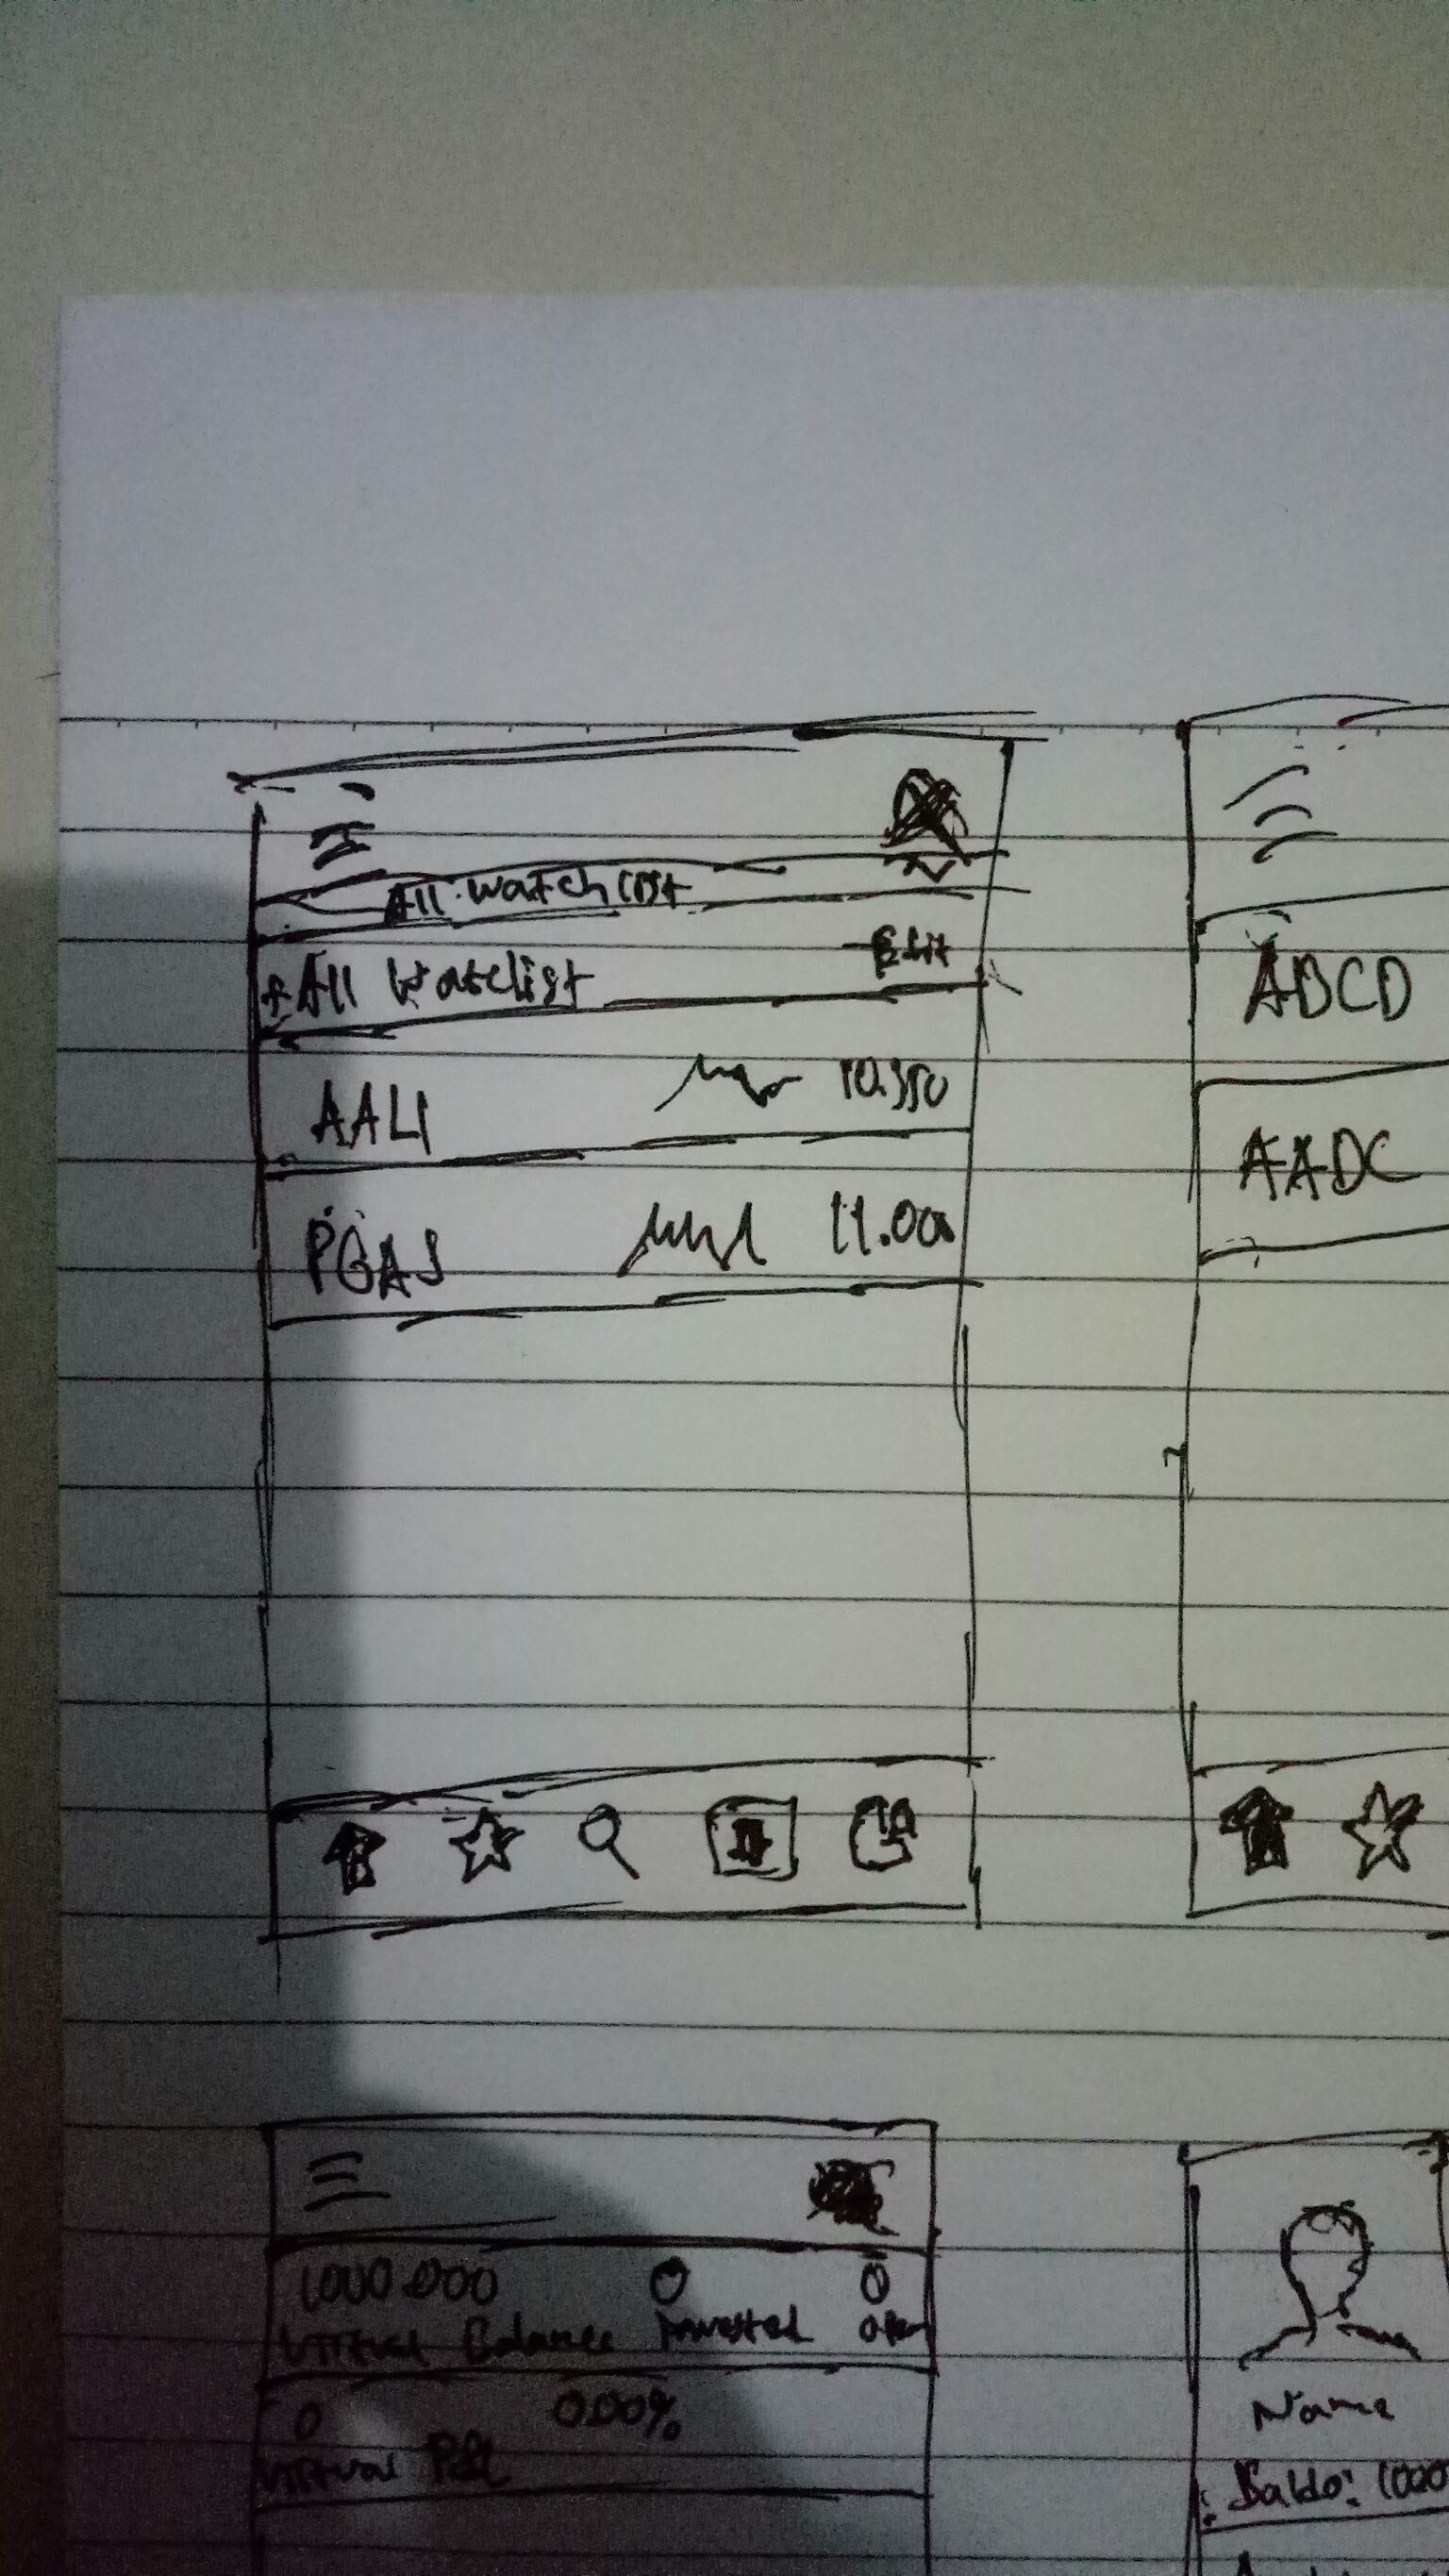 All watch list
+ All Watclist Edit
AALI 10.350
PGAS 11.000
ABCD
AADC
1000.000 0 0
Virtual Balance Invested
0 0.00%
Virtual P&L
Name
Saldo: 1000